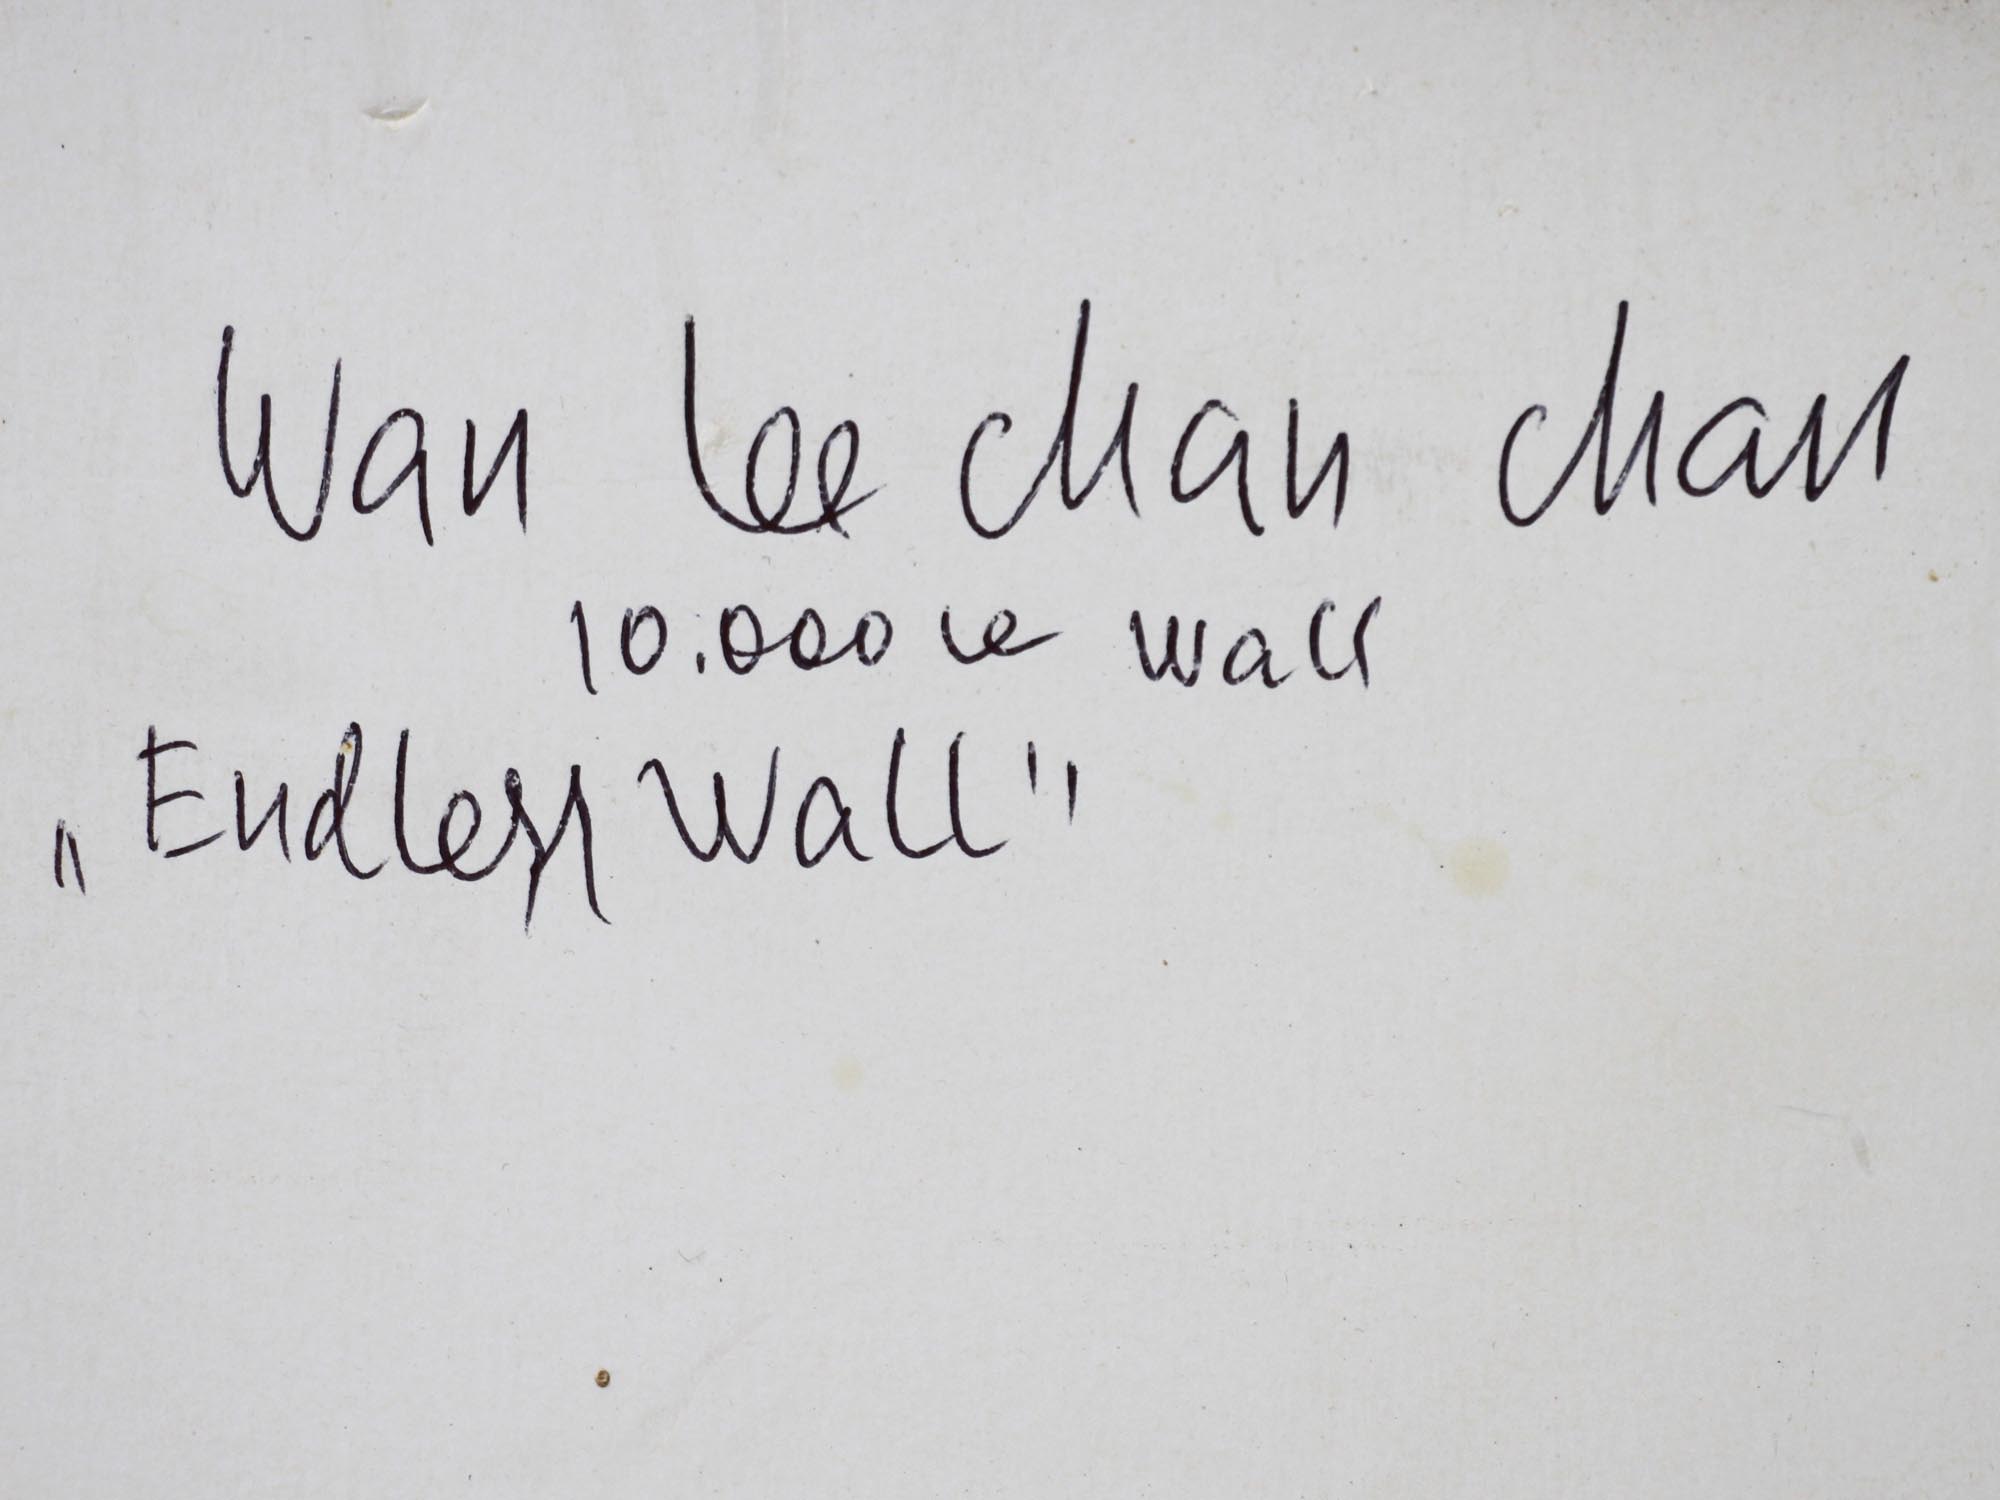 Wan lee chan chan
10.000 le wall
„Endless Wall"